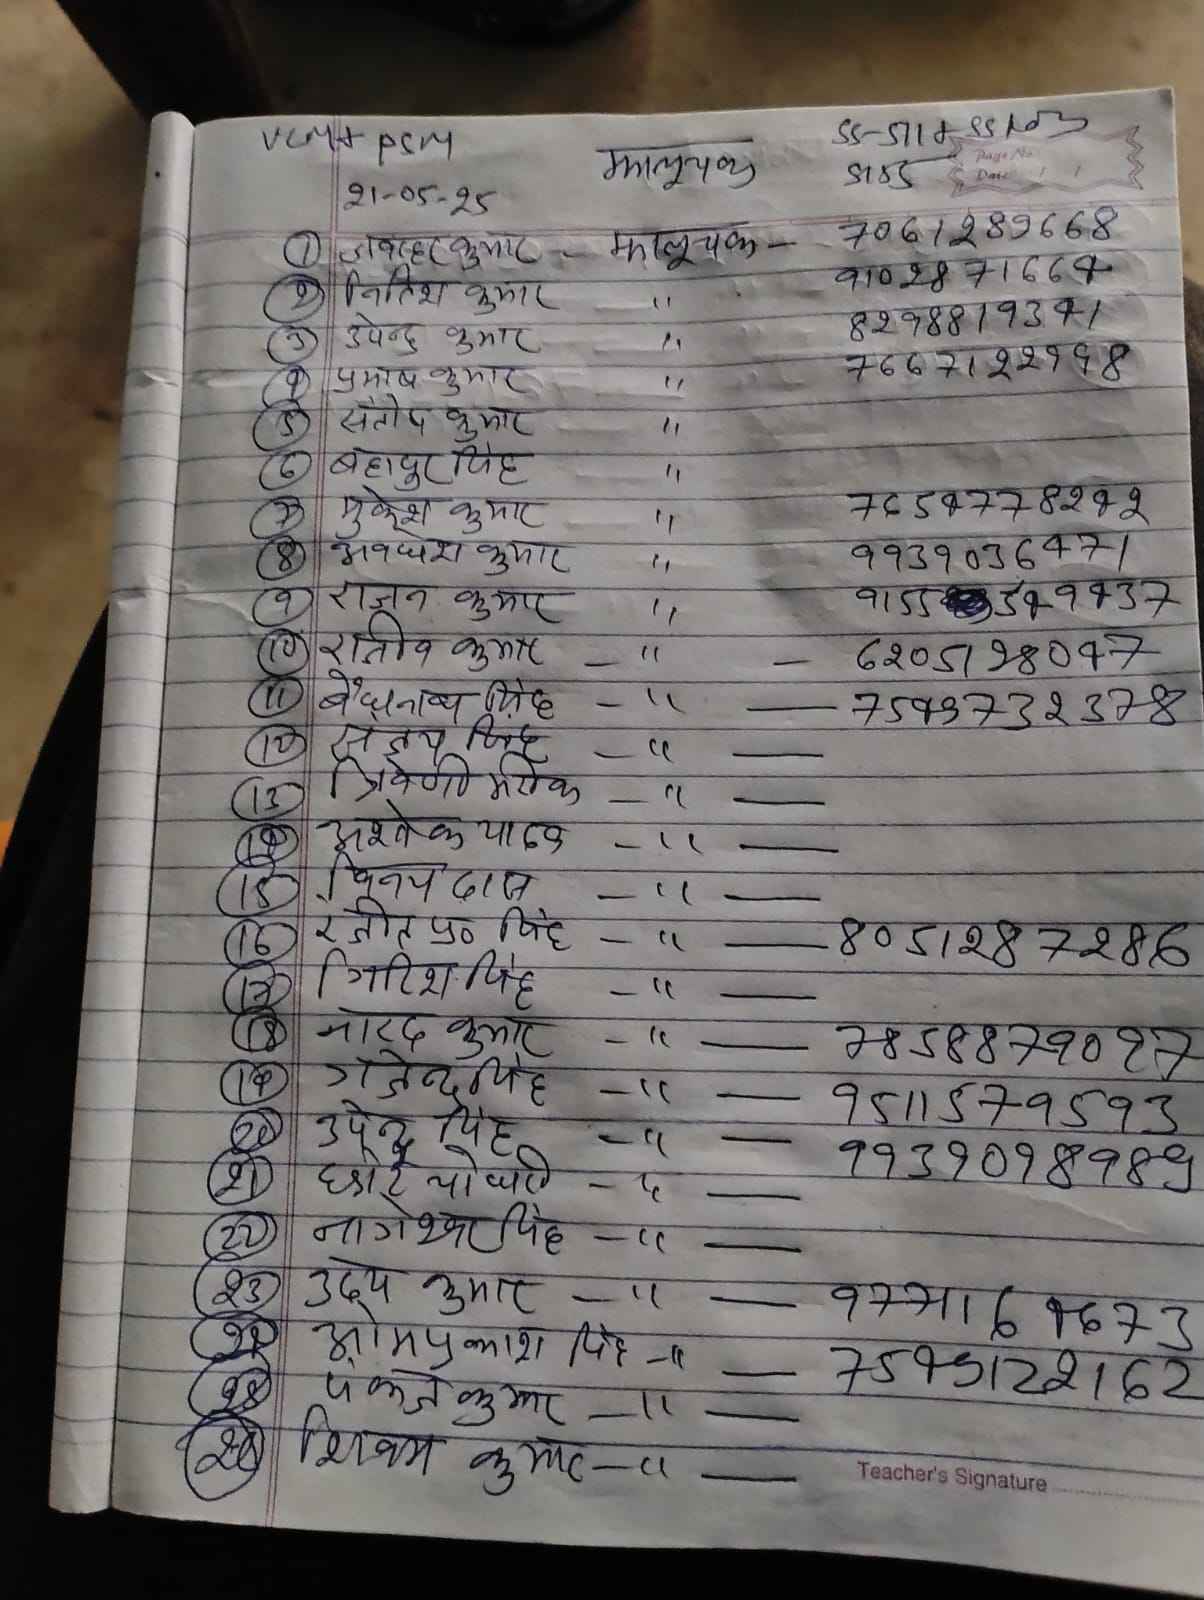 VCM+ PSM
21-05-25
मालूचक
SS-5118
5185
Page No.
Date
① जवाहर कुमार - मालूचक - 7061289668
② नितिश कुमार " 9102871664
③ उपेन्द्र कुमार " 8298819341
④ प्रभाष कुमार " 7667122998
⑤ संतोष कुमार "
⑥ बहादुर सिंह "
⑦ मुकेश कुमार " 7654778242
⑧ अवधेश कुमार " 9939036471
⑨ राजन कुमार " 9155349437
⑩ राजीव कुमार - " - 6205128047
⑪ बैधनाथ सिंह - " — 7549732378
⑫ संजय सिंह - " —
⑬ त्रिवेणी मलिक - " —
⑭ अशोक यादव - " —
⑮ विनय दास - " —
⑯ रंजीत प्र० सिंह - " — 8051287286
⑰ गिरिश सिंह - " —
⑱ नारद कुमार - " — 7858879027
⑲ गजेन्द्र सिंह - " — 9511579593
⑳ उपेन्द्र सिंह - " — 9939098989
㉑ छोटे चौधरी - " —
㉒ नागेश्वर सिंह - " —
㉓ उदय कुमार - " — 9771164673
㉔ ओमप्रकाश सिंह - " — 7549122162
㉕ पंकज कुमार - " —
㉖ शिवम कुमार - " —
Teacher's Signature